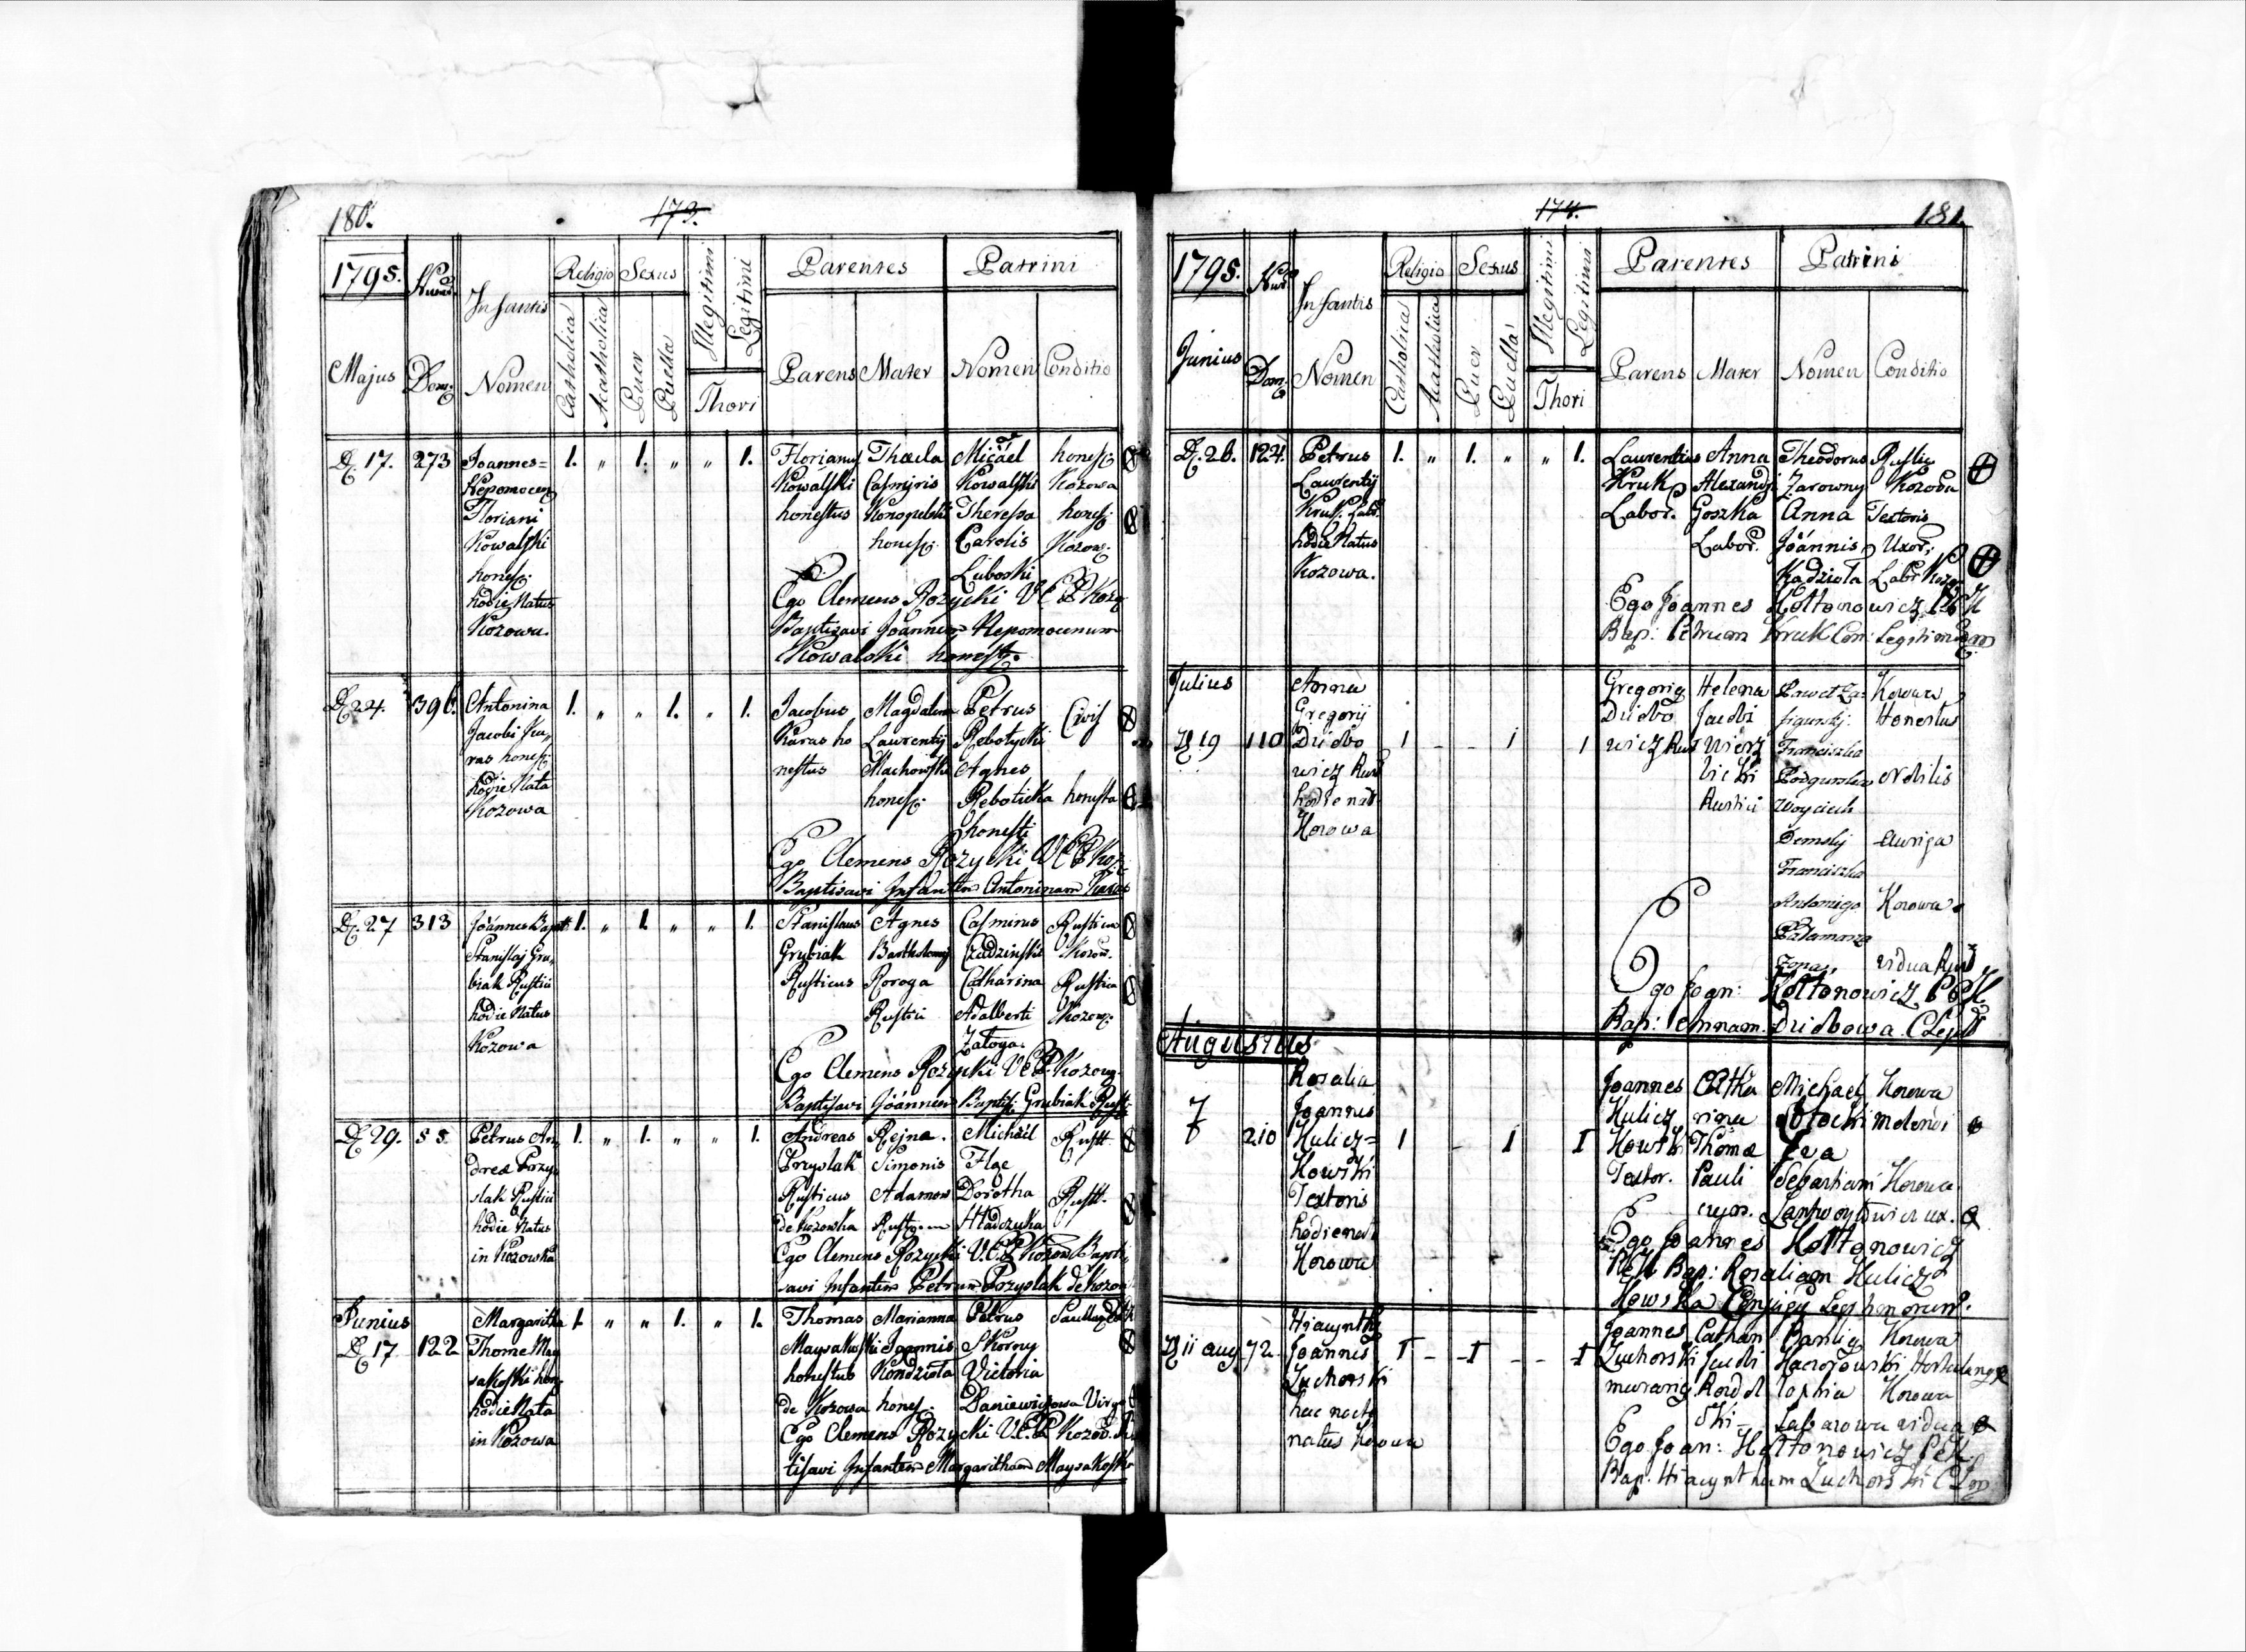 180.
173.
1795.
Num.
Dom.
Majus
Infantis
Nomen
Religio
Catholica
Acatholica
Sexus
Puer
Puella
Illegitimi
Legitimi
Thori
Parentes
Parens
Mater
Patrini
Nomen
Conditio
D. 17. 273
Joannes=
Nepomocen
Floriani
Kowalski
honest:
hodie Natus
Kozowa.
1. „ 1. „ „ 1.
Florianus
Kowalski
honestus
Thecla
Casmiris
honest:
Micäel
Kowalski
Theressa
Carolis
Luboski
honest:
Kozowa
honest:
Kozow:
Ego Clemens Rozycki V C P Kozo
Baptizavi Joannem Nepomocenum
Kowalski honest:
D. 24. 396.
Antonina
Jacobi Ka,
ras honest:
hodie Nata
Kozowa
1. „ „ 1. „ 1.
Jacobus
Karas ho
nestus
Magdalena
Laurentij
Machowski
honest:
Petrus
Rebotycki
Agnes
Reboticka
honesti
Civis
honesta
Ego Clemens Rozycki V C P Koz:
Baptisavi Infantem Antoninam Karas
D. 27 313
Joannes Bapt:
Stanislaj Gru,
biak Rustici
hodie Natus
Kozowa
1. „ 1. „ „ 1.
Stanislaus
Grubiak
Rusticus
Agnes
Bartholomej
Roroga
Rustici
Casmirus
Catharina
Adalberti
Zatoga.
Rusticus
Kozow:
Rustica
Kozow:
Ego Clemens Rozycki V C P Kozow:
Baptisavi Joännem Baptis: Grubiak Rusti:
D. 29. 55.
Petrus An,
dreæ Przy,
slak Rustici
hodie Natus
in Kozowka
1. „ 1. „ „ 1.
Andreas
Przyslak
Rusticus
de Kozowka
Rejna.
Simonis
Adamow
Michäel
Dorotha
Rustt.
Rustt.
Ego Clemens Rozycki V.C.P. Kozow Bapti,
savi Infantem Petrum Przyslak de Kozow
Junius
D. 17 122
Margaritha
Thome May
sakoski hon:
hodie Nata
in Kozowa
1. „ „ 1. „ 1.
Thomas
Maysakoski
honestus
de Kozowa
Marianna
Joannis
Kondziola
hones:
Petrus
Skorny
Victoria
Daniewiczowa Virgo
Ego Clemens Rozycki V.C.P. Kozow.
tisavi Infantem Margaritham Maysakoski
174.
181.
1795.
Num
Dom.
Junius
Infantis
Nomen
Religio
Catholica
Acatholica
Sexus
Puer
Puella
Illegitimi
Legitimi
Thori
Parentes
Parens
Mater
Patrini
Nomen
Conditio
D. 26. 124.
Petrus
Laurentij
Kruk. Labr.
hodie Natus
Kozowa.
1. „ 1. „ „ 1.
Laurentius
Kruk
Labor.
Anna
Alexandr
Goszka
Labor.
Theodorus
Zarowny
Anna
Joännis
Kadziola
Rustic
Kozova
Textoris
Uxor;
Ego Joannes Koltonowicz
Bap: Petrum Kruk Con: Legitimorum
Julius
D 19 110
Anna
Gregorij
Dzidbo
wicz Rus
hodie nat
Kozowa
1 - - 1 1
Gregorig
Dzidbo
wicz Rus
Helena
Jacobi
Wierz
bicki
Rustici
Franciszka
Woyciech
Demskij
Franciszka
Antoniego
Palamarza
zona,
Kozowa
Honestus
Nobilis
Auriga
Kozowa
vidua Rust
Ego Joan: Koltonowicz P C K
Bap: Annam Dzidbowa C Legit
Augustus
7
210
Rosalia
Joannis
Kulicz=
Kowski
Textoris
hodie nat
Kozowa
1 - 1 1
Joannes
Kulicz
Kowski
Textor.
Catha
rina
Thomæ
Pauli
Michael
Potocki
Eva
Sebastiani
Kozowa
Kozowa
Ego Joannes Koltonowicz
PCK Bap: Rosaliam Kulicz
Kowska Conjugu Legitimorum.
D 11 aug 72
Hiacynthg
Joannes
Zuchorski
hac nocte
natus Kozowa
1 - 1 - - 1
Joannes
Zuchorski
murarig
Cathar
Jacobi
Bazilig
Zophia
Lazarowa vidua
Kozowa
Kozowa
Ego Joan: Koltonowicz PCK
Bap. Hiacynthum Zuchorski C Leg